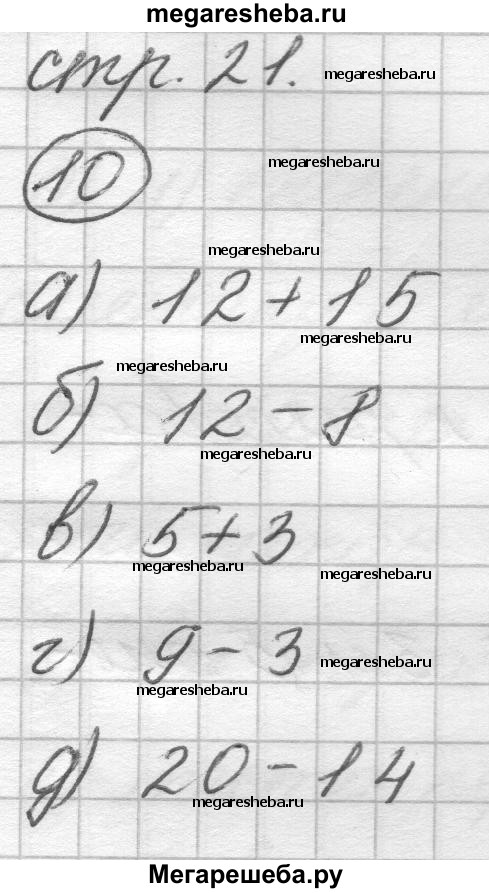 megaresheba.ru
стр. 21. megaresheba.ru
10 megaresheba.ru
megaresheba.ru
а) 12 + 15
megaresheba.ru
megaresheba.ru
б) 12 - 8
megaresheba.ru
в) 5 + 3
megaresheba.ru
megaresheba.ru
г) 9 - 3 megaresheba.ru
megaresheba.ru
д) 20 - 14
megaresheba.ru
Мегарешеба.ру